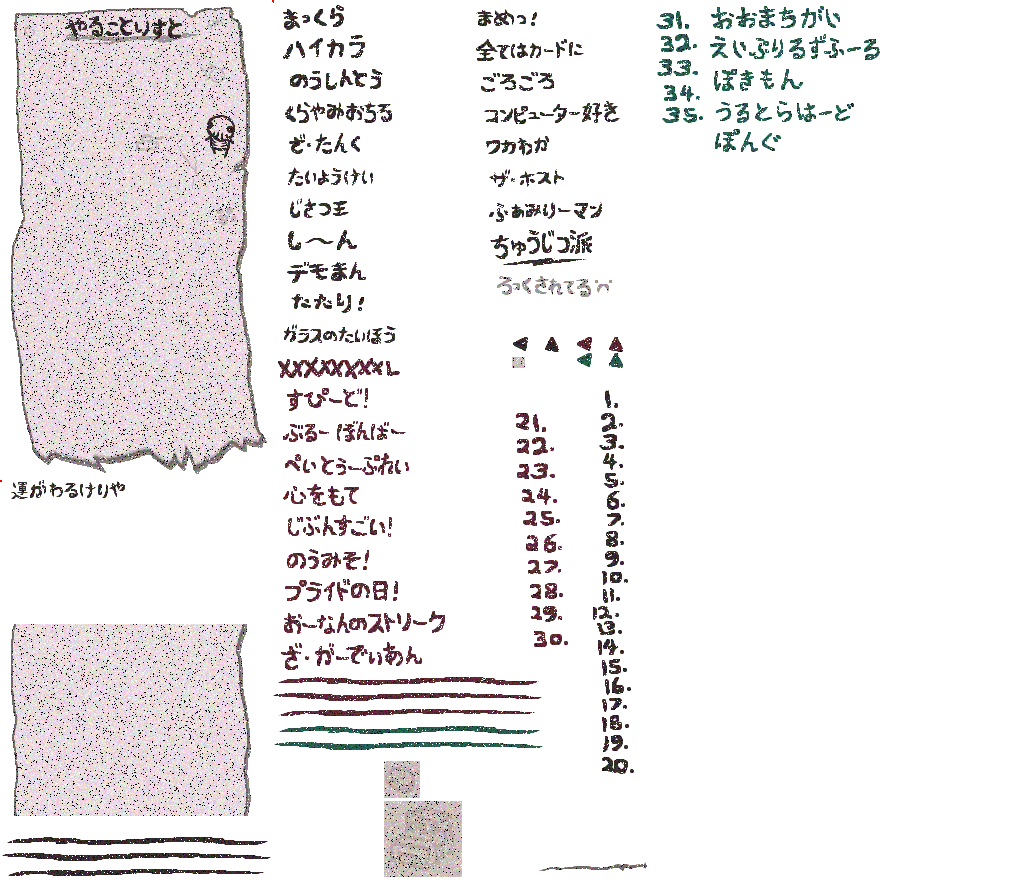 やることりすと
運がわるけりや
まっくら
ハイカラ
のうしんとう
くらやみおちる
ざ・たんく
たいようけい
じさつ王
し〜ん
デモまん
たたり!
ガラスのたいほう
XXXXXXXXL
すぴーど!
ぶるーぼんばー
ぺいとぅーぷれい
心をもて
じぶんすごい!
のうみそ!
プライドの日!
おーなんのストリーク
ざ・がーでぃあん
まめっ!
全てはカードに
ごろごろ
コンピューター好き
ワカわか
ザ・ホスト
ふぁみりーマン
ちゅうじつ派
ろっくされてる
21.
22.
23.
24.
25.
26.
27.
28.
29.
30.
1.
2.
3.
4.
5.
6.
7.
8.
9.
10.
11.
12.
13.
14.
15.
16.
17.
18.
19.
20.
31. おおまちがい
32. えいぷりるずふーる
33. ぽきもん
34.
35. うるとらはーど
ぽんぐ